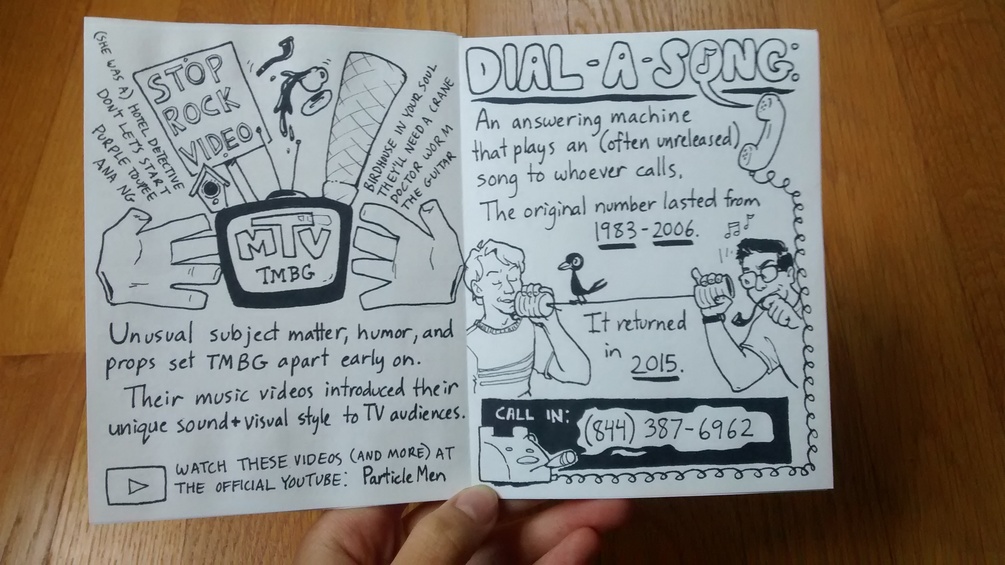 (SHE WAS A) HOTEL DETECTIVE
DON'T LET'S START
PURPLE TOUPEE
ANA NG
STOP
ROCK
VIDEO
BIRDHOUSE IN YOUR SOUL
THEY'LL NEED A CRANE
DOCTOR WORM
THE GUITAR
MTV
TMBG
Unusual subject matter, humor, and
props set TMBG apart early on.
Their music videos introduced their
unique sound + visual style to TV audiences.
WATCH THESE VIDEOS (AND MORE) AT
THE OFFICIAL YOUTUBE: Particle Men
DIAL-A-SONG:
An answering machine
that plays an (often unreleased)
song to whoever calls.
The original number lasted from
1983-2006.
It returned
in 2015.
CALL IN: (844) 387-6962